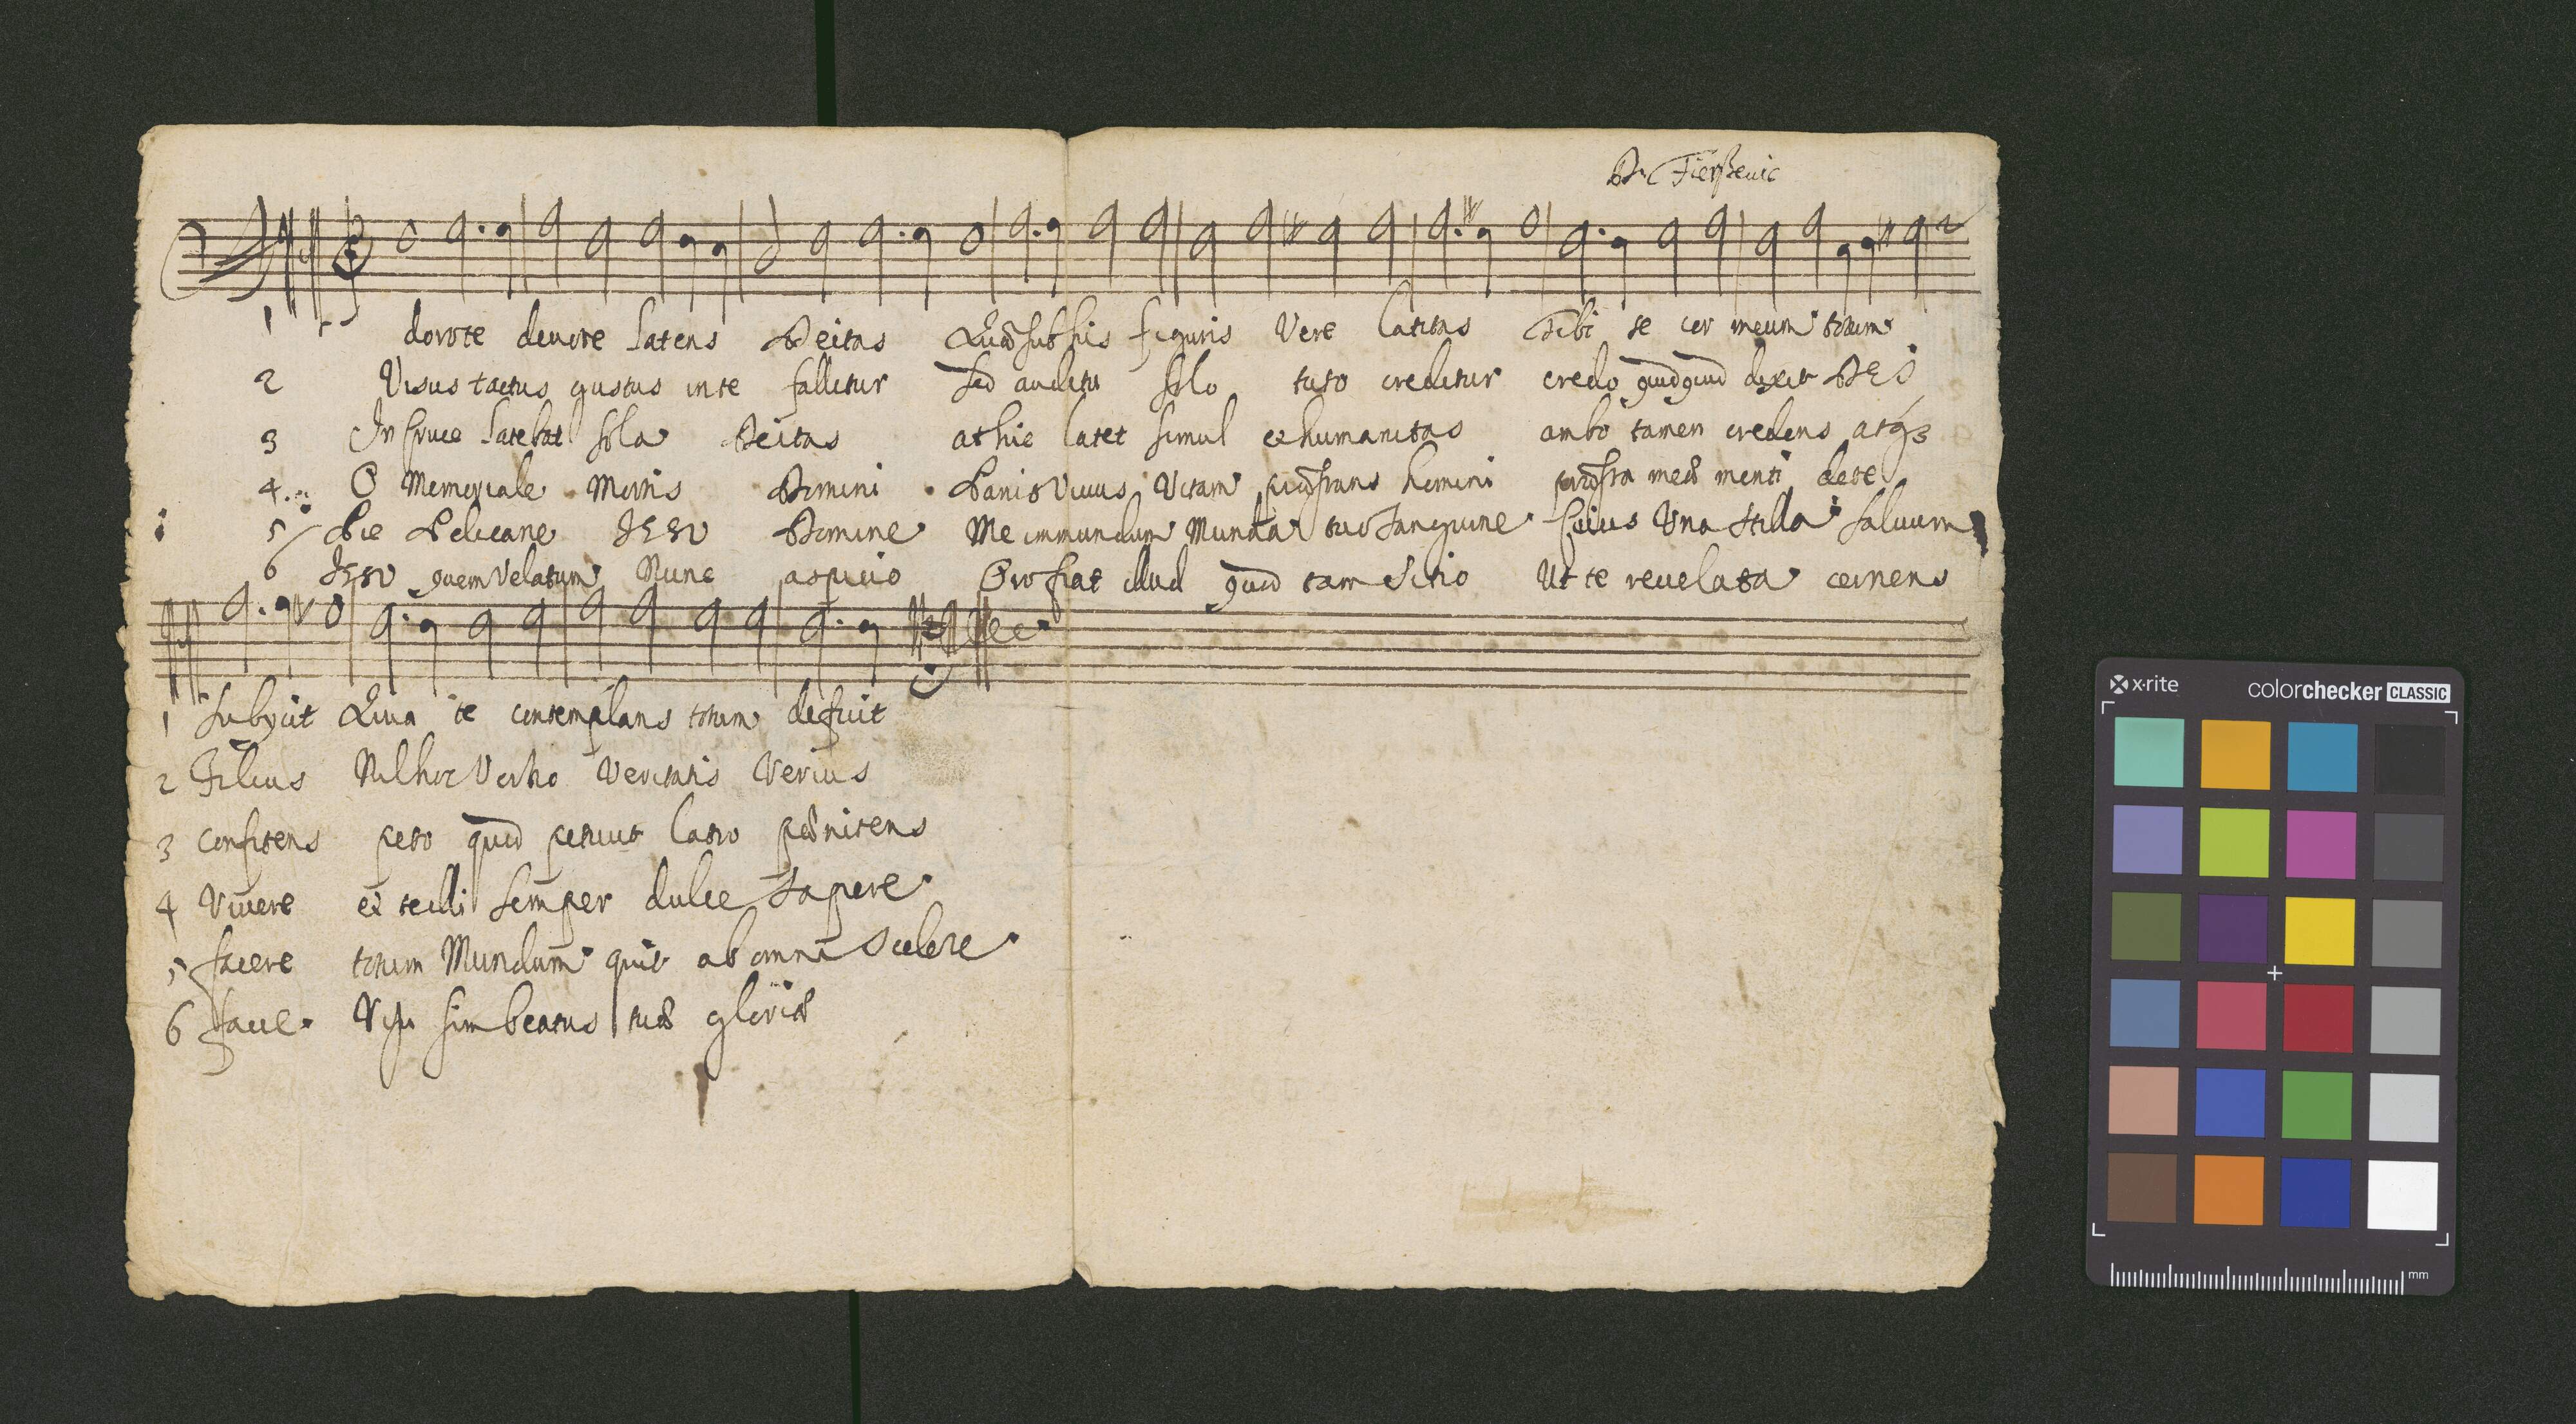 D. Fierszewic
1 dorote devote latens Deitas Quæ sub his figuris Vere latitas Tibi se cor meum totum
2 Visus tactus gustus in te fallitur sed auditu solo tuto creditur credo quidquid dixit DEI
3 In Cruce latebat sola Deitas at hic latet simul et humanitas ambo tamen credens atq3
4 O Memoriale Mortis Domini Panis Vivus Vitam præstans homini præsta meæ menti dete
5 Pie Pelicane IESU Domine Me immundum Munda tuo sanguine Cuius Una stilla salvum
6 IESU quem Velatum Nunc aspicio Oro fiat illud quod tam sitio Ut te revelata cernens
1 subijcit Quia te contemplans totum deficit
2 Filius Nil hoc Verbo Veritatis Verius
3 confitens peto quod petivit latro pænitens
4 Vivere et te illi semper dulce sapere
5 facere totum Mundum quit ab omni scelere
6 facie Visu sim beatus tuæ gloriæ
x·rite colorchecker CLASSIC
mm